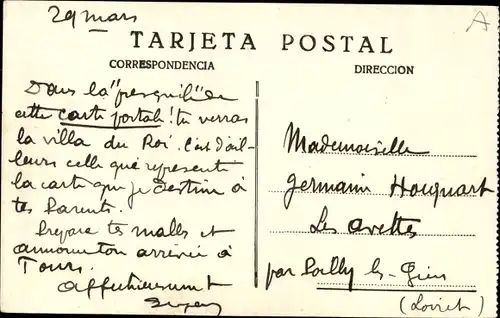 29 mars
A
TARJETA POSTAL
CORRESPONDENCIA
DIRECCION
Dans la "presqu'ile" de
cette carte postale! tu verras
la villa du Roi. C'est d'ail-
leurs celle que represente
la carte que je destine à
tes Parents.
Prepare tes malles et
annonce ton arrivée à
Tours.
affectueusement
Mademoiselle
Germaine Hocquart
Les
par Poilly lez-Gien
(Loiret)